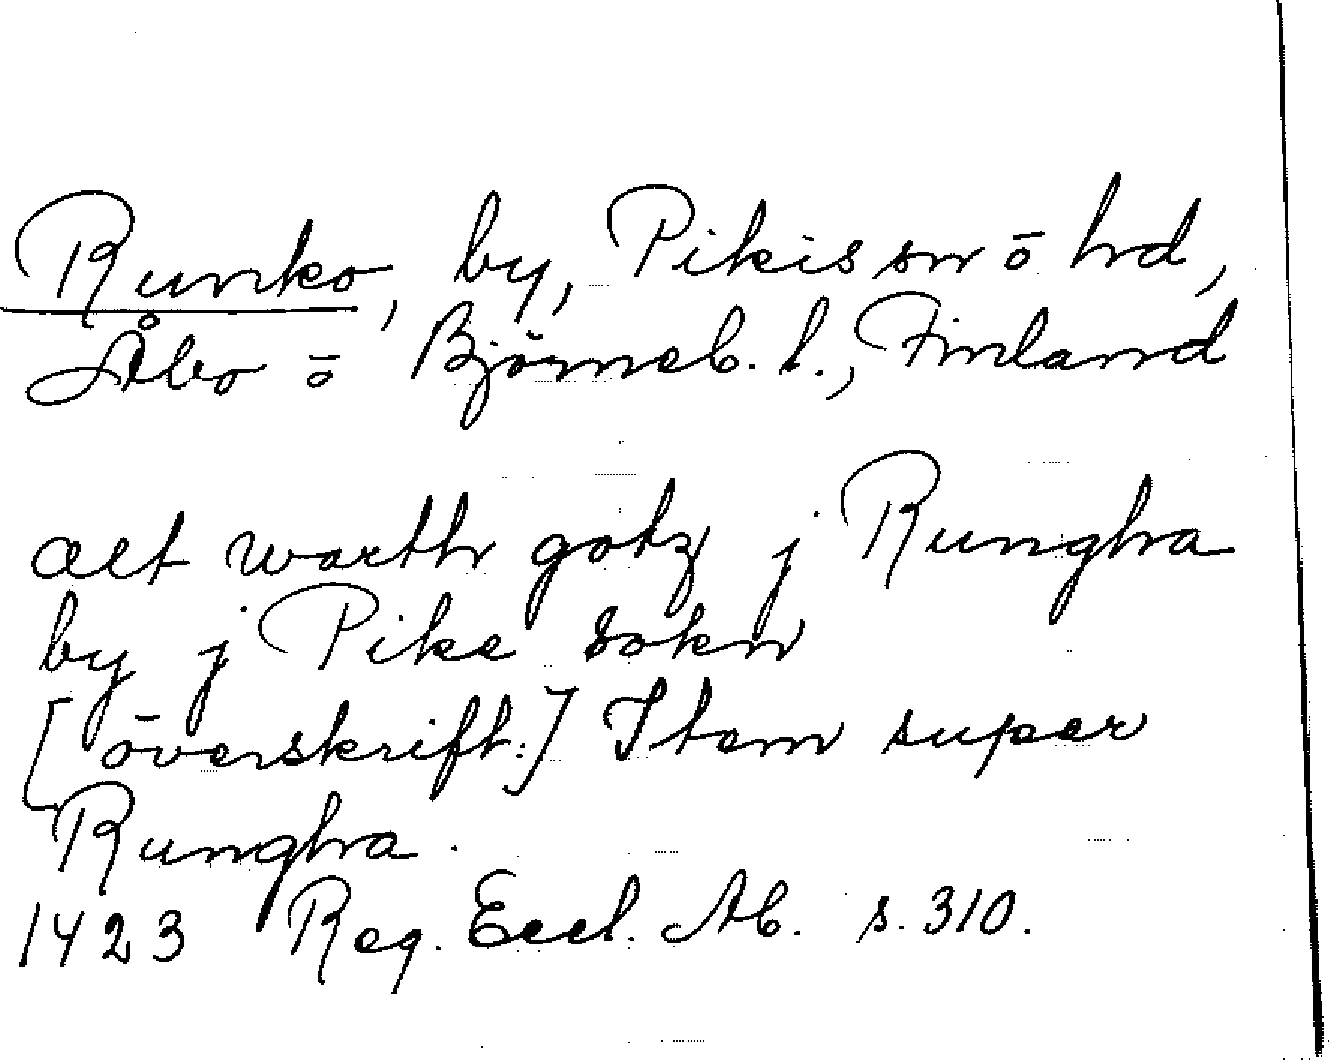 Runko, by, Pikis sn ō hd,
Åbo ō Björneb. l., Finland
alt warth gotz j Rungha
by j Pike sokn
[överskrift:] Item super
Rungha.
1423 Reg. Eccl. Ab. s. 310.